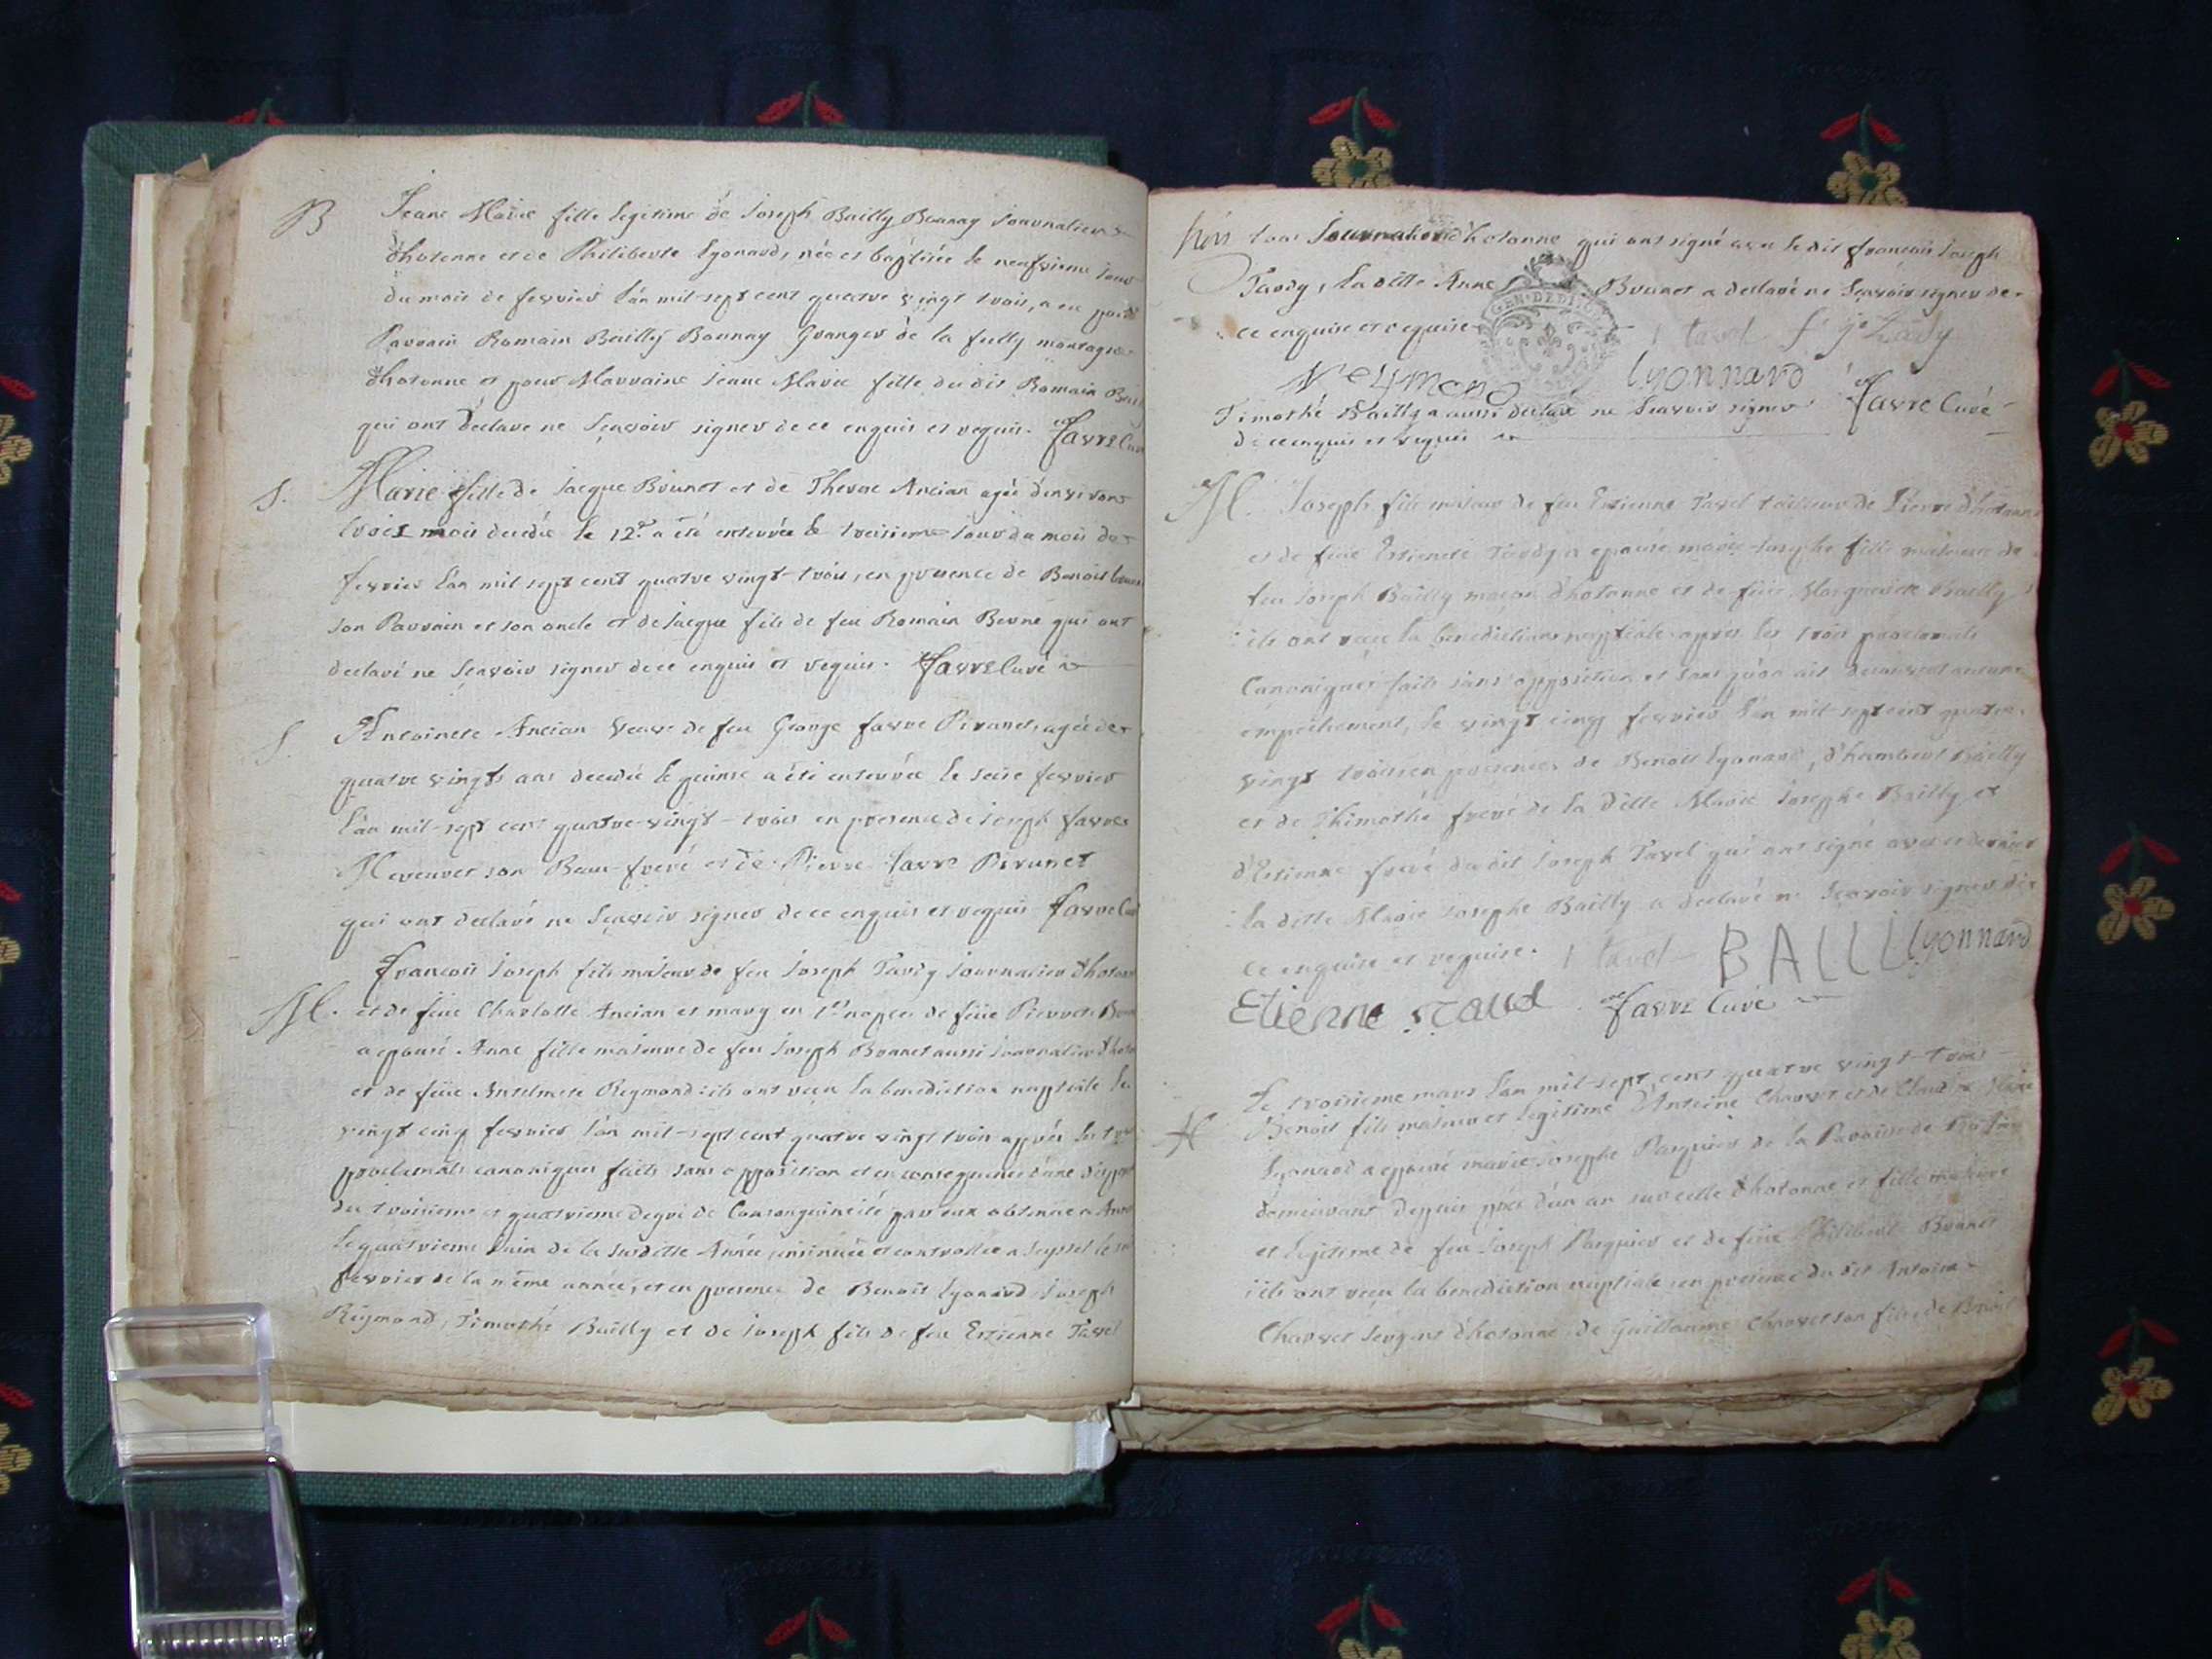 B
Jeane Marie fille legitime de Joseph Bailly Bonnay Journalier
d'hotonne et de Philiberte Lyonard, née et baptisée le neufvieme jour
du mois de fevrier l'an mil sept cent quatre vingt trois, a eu pour
Parrain Romain Bailly Bonnay Granger de la fully montagne
d'hotonne et pour Marraine Jeane Marie fille du dit Romain
qui ont declaré ne sçavoir signer de ce enquis et requis. favre Cur
S.
Marie fille de Jacque Brunet et de Therese Ancian agée d'environ
trois mois decedée le 12e a été enterrée le treisieme jour du mois de
fevrier l'an mil sept cent quatre vingt-trois, en presence de Benoit
son Parrain et son oncle et de Jacque fils de feu Romain Berne qui ont
declaré ne sçavoir signer de ce enquis et requis. favre Curé
S.
Antoinete Ancian veuve de feu George favre Pirunet, agée de
quatre vingts ans decedée le quinze a été enterrée le seise fevrier
l'an mil-sept cent quatre-vingt-trois en presence de Joseph favre
son Beau frere et de Pierre favre Pirunet
qui ont declaré ne sçavoir signer de ce enquis et requis favre Cur
francois Joseph fils majeur de feu Joseph Tardy Journalier d'hotonn
M.
et de feüe Charlotte Ancian et mary en 1r nopces de feüe Pierrete
a epousé Anne fille majeure de feu Joseph Brunet aussi Journalier d'hoto
et de feüe Antelmete Reymond: ils ont reçu la benediction nuptiale le
vingt cinq fevrier l'an mil-sept cent quatre vingt trois apprés les
proclamats canoniques faits sans opposition et en consequence d'une
du troisieme et quatrieme degré de Consanguineité par eux obtenüe a
le de la susditte Année, insinuée et controllée a Seyssel le
fevrier de la même année, et en presence de Benoit Lyonard Joseph
Reymond, Timothé Bailly et de Joseph fils de feu Estienne Tavel
tous Journaliers d'hotonne qui ont signé avec le dit francois Joseph
Tardy, la ditte Anne Brunet a declaré ne sçavoir signer de
ce enquise et requise
GEN. DE DI
I tavel f j Tardy
Reymond Lyonnard
Timothé Bailly a aussi declaré ne sçavoir signer favre Curé
de ce enquis et requis
M.
Joseph fils majeur de feu Estienne Tavel tailleur de Pierre d'hotonne
et de feüe Estienete Tardy a epousé marie-Josephe fille majeure de
feu Joseph Bailly maçon d'hotonne et de feüe Marguerite Bailly
ils ont reçu la benediction nuptiale apres les trois proclamats
Canoniques faits sans opposition et sans qu'on ait decouvert aucun
empechement, le vingt cinq fevrier l'an mil-sept cent quatre
vingt trois en presence de Benoit Lyonard, d'humbert Bailly
et de Thimothé frere de la ditte Marie Josephe Bailly et
d'Estienne frere du dit Joseph Tavel qui ont signé avec ce dernier
la ditte Marie Josephe Bailly a declaré ne sçavoir signer de
ce enquise et requise. I tavel BAILLI Lyonnard
Etienne favre Curé
Le troisieme mars l'an mil-sept cent quatre vingt-trois
M
Benoit fils majeur et legitime d'Antoine Chauvet et de Claudine
Lyonard a epousé marie-Josephe Pasquier de la Paroisse de
demeurant depuis près d'un an sur celle d'hotonne et fille majeure
et legitime de feu Joseph Pasquier et de feüe Philiberte Brunet
ils ont reçu la benediction nuptiale en presence du dit Antoine
Chauvet sergent d'hotonne, de Guillaume Chauvet son fils de Benoit